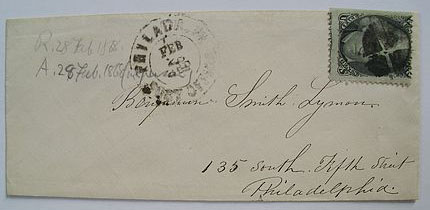 R. 28 Feb. 1868
A. 28 Feb. 1868
PHILADA
FEB
Benjamin Smith Lyman.
135 South. Fifth Street
Philadelphia.